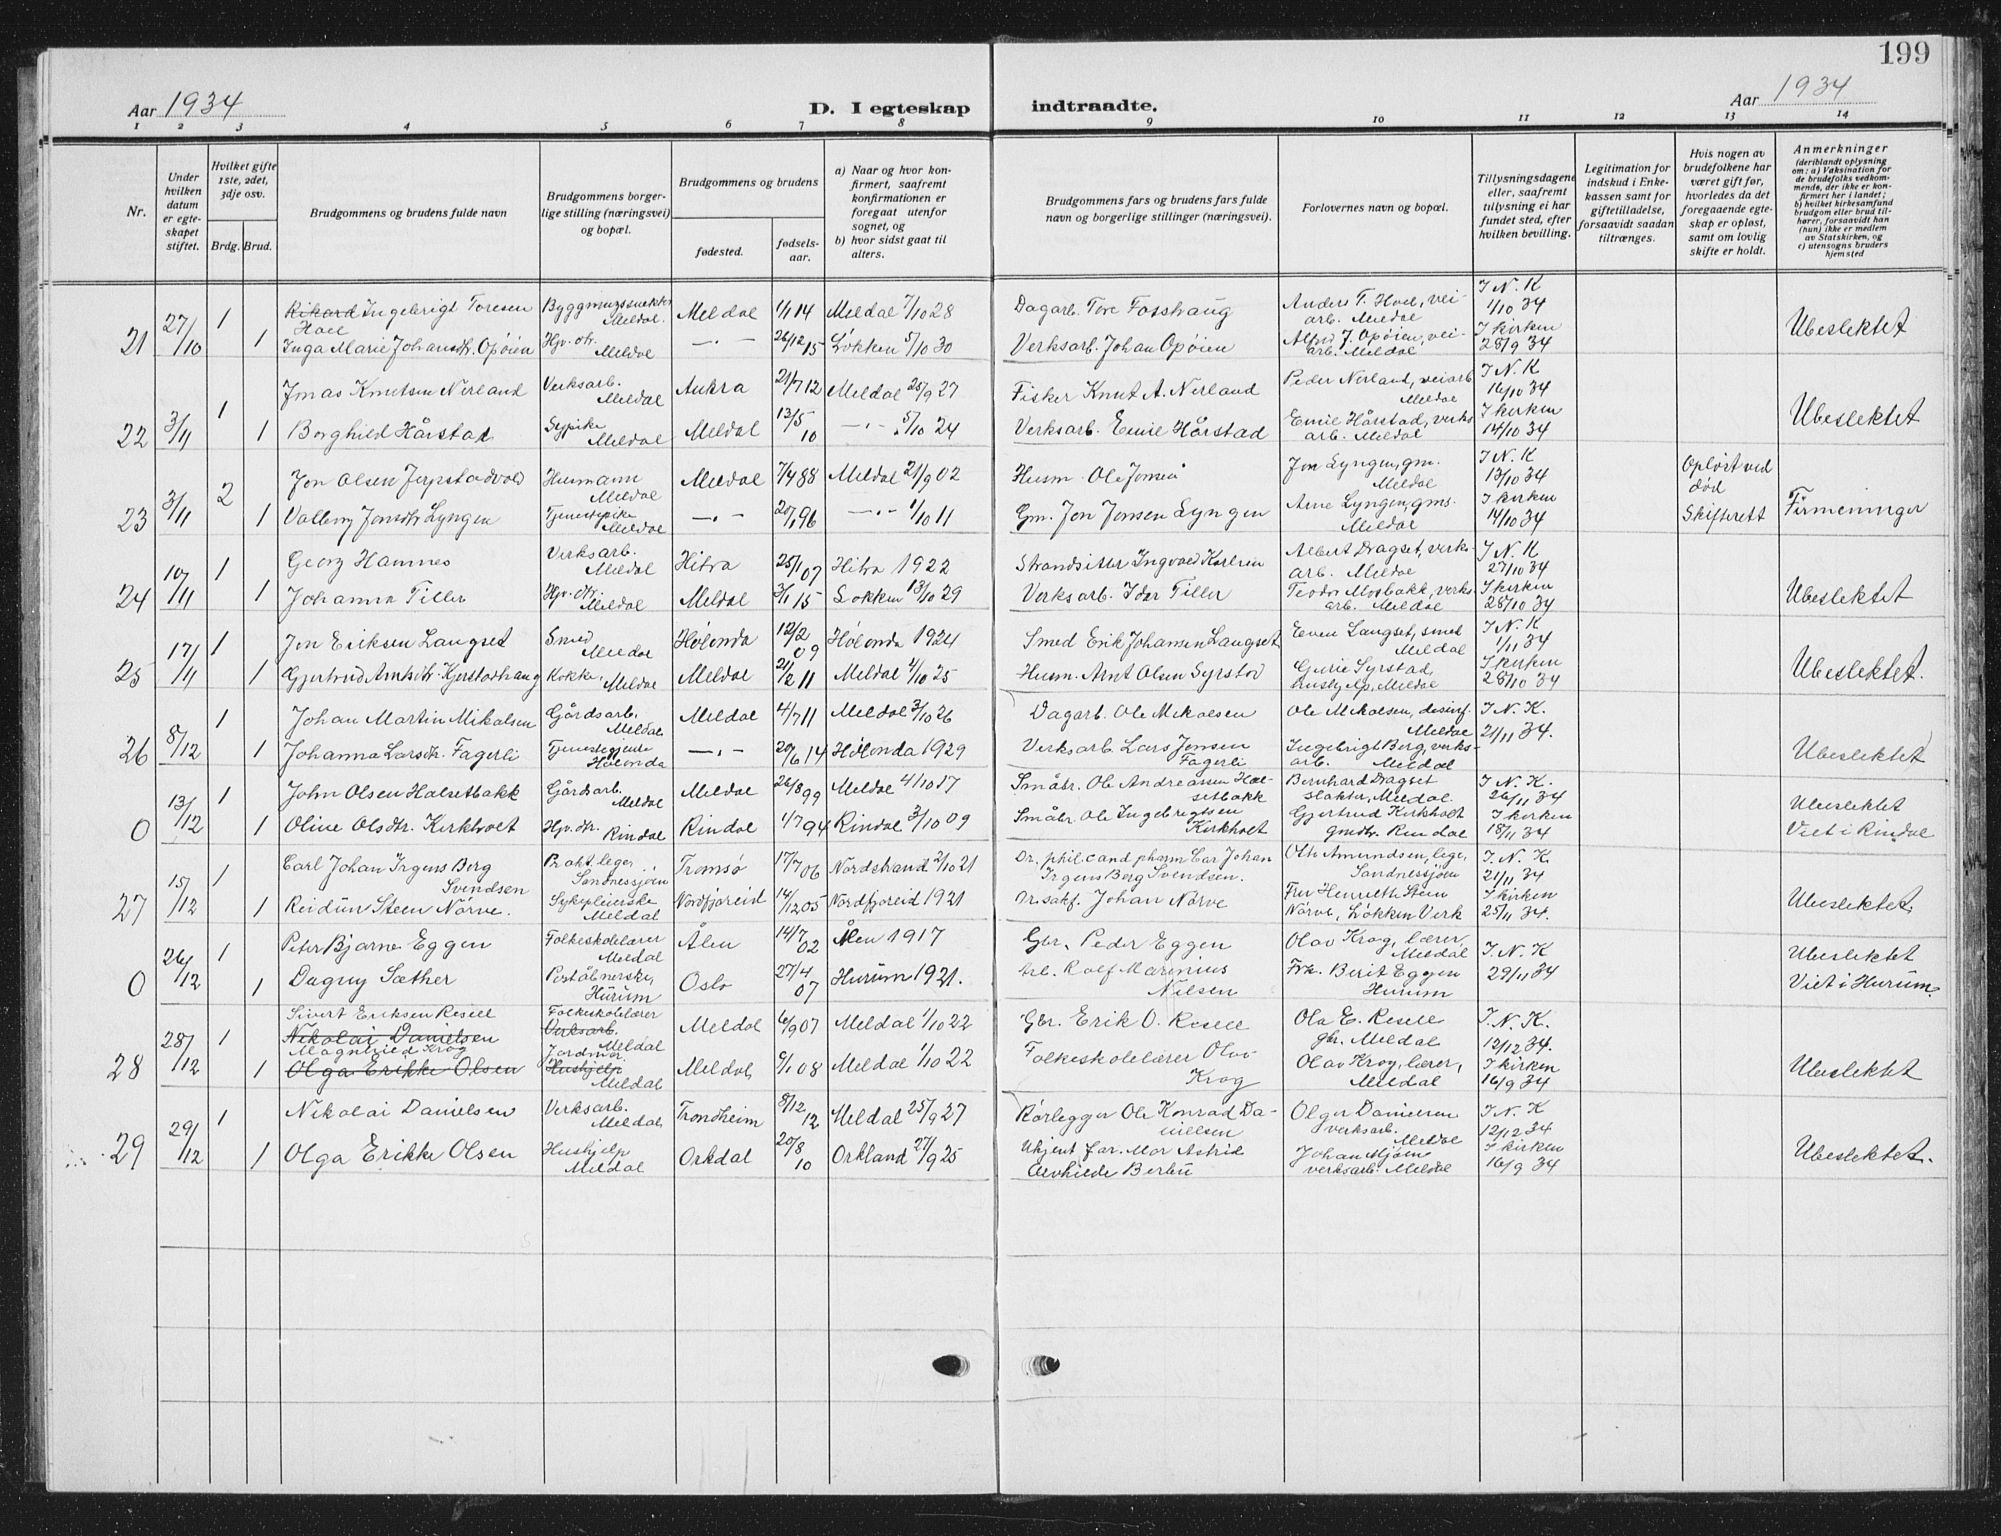 199
Aar 1934
D. I egteskap indtraadte.
Aar 1934
1 2 3 4 5 6 7 8 9 10 11 12 13 14
Nr.
Under hvilken datum er egte-skapet stiftet.
Hvilket gifte 1ste, 2det, 3dje osv.
Brdg. Brud.
Brudgommens og brudens fulde navn
Brudgommens borger-lige stilling (næringsvei) og bopæl.
Brudgommens og brudens
fødested.
fødsels-aar.
a) Naar og hvor kon-firmert, saafremt konfirmationen er foregaat utenfor sognet, og
b) hvor sidst gaat til alters.
Brudgommens fars og brudens fars fulde navn og borgerlige stillinger (næringsvei).
Forlovernes navn og bopæl.
Tillysningsdagene eller, saafremt tillysning ei har fundet sted, efter hvilken bevilling.
Legitimation for indskud i Enke-kassen samt for giftetilladelse, forsaavidt saadan tiltrænges.
Hvis nogen av brudefolkene har været gift før, hvorledes da det foregaaende egte-skap er opløst, samt om lovlig skifte er holdt.
Anmerkninger
(deriblandt oplysning om: a) Vaksination for de brudefolks vedkom-mende, der ikke er kon-firmert her i landet; b) hvilket kirkesamfund brudgom eller brud til-hører, forsaavidt han (hun) ikke er medlem av Statskirken, og c) utensogns bruders hjemsted
21 27/10 1 Rikard Ingebrigt Toresen Hoel Meldal. Meldal 1/1 14 Meldal 7/10 28 Dagarb. Tore Fosshaug Anders T. Hoel, vei-arb. Meldal I N. K 1/10 34
1 Inga Marie Johansdtr. Opøien Hjv. dtr. Meldal —"— 26/12 15 Løkken 5/10 30 Verksarb. Johan Opøien Alfred J. Opøien, vei-arb. Meldal I kirken 28/9 34 Ubeslektet
22 3/11 1 Jonas Knutsen Nerland Verksarb. Meldal Aukra 21/7 12 Meldal 25/9 27 Fisker Knut A. Nerland Peder Nerland, veiarb Meldal I N. K 16/10 34
1 Borghild Hårstad Sypike Meldal Meldal 13/5 10 —"— 5/10 24 Verksarb. Emil Hårstad Emil Hårstad, verks arb. Meldal I kirken 14/10 34 Ubeslektet
23 3/11 2 Jon Olsen Jerpstadvold Husmann Meldal Meldal 7/4 88 Meldal 21/9 02 Husm. Ole Jonsen Jon Lyngen, gm. Meldal I N. K 13/10 34 Opløst ved død
1 Valborg Jonsdtr Lyngen Tjenestepike Meldal —"— 20/1 96 —"— 1/10 11 Gm. Jon Jonsen Lyngen Arne Lyngen, gms. Meldal I kirken 14/10 34 Skifterett Firmeninger
24 10/11 1 Georg Hamnes Verksarb. Meldal Hitra 25/1 07 Hitra 1922 Strandsitter Ingvald Karlsen Albert Dragset, verks-arb. Meldal I N. K 27/10 34
1 Johanna Tiller Hjv. dtr. Meldal Meldal 3/1 15 Løkken 13/10 29 Verksarb. Idar Tiller Teodor Mosbakk, verks-arb. Meldal I kirken 28/10 34 Ubeslektet
25 17/11 1 Jon Eriksen Langset Smed Meldal Hølonda 12/2 09 Hølonda 1924 Smed Erik Johansen Langset Even Langset, smed Meldal I N. K 1/11 34
1 Gjertrud Arntsdtr. Kjerstadhaug Kokke, Meldal Meldal 21/2 11 Meldal 4/10 25 Husm. Arnt Olsen Syrstad Gurie Syrstad, hushjelp, Meldal I kirken 28/10 34 Ubeslektet.
26 8/12 1 Johan Martin Mikalsen Gårdsarb. Meldal Meldal 4/7 11 Meldal 3/10 26 Dagarb. Ole Mikalsen Ole Mikalsen, Meldal I N. K. 21/11 34.
1 Johanna Larsdtr. Fagerli Tjenestepike Hølonda —"— 20/6 14 Hølonda 1929 Verksarb. Lars Jonsen Fagerli Ingebrigt Berg, verks-arb. Meldal Ubeslektet
0 13/12 1 John Olsen Halsetbakk Gårdsarb. Meldal Meldal 26/8 99 Meldal 4/10 17 Småbr. Ole Andreassen Hal-setbakk Bernhard Dragset slakter, Meldal. I N. K. 26/11 34 Ubeslektet
1 Oline Olsdtr. Kirkholt Hjv. dtr. Rindal Rindal 4/7 94 Rindal 3/10 09 Småbr. Ole Ingebrigtsen Kirkholt Gjertrud Kirkholt gmdtr. Rindal I kirken 18/11 34 Viet i Rindal
27 15/12 1 Carl Johan Irgens Berg Svendsen Prakt. lege, Sandnessjøen Tromsø 17/7 06 Nordstrand 2/10 21 Dr. phil. cand pharm Car Johan Irgens Berg Svendsen. Otto Amundsen, lege, Sandnessjøen I. N. K. 21/11 34
1 Reidun Steen Nørve. Sykepleierske Meldal Nordfjoreid 14/12 05 Nordfjoreid 1921 Or.sakf. Johan Nørve Fru Henriette Steen Nørve, Løkken Verk I kirken 25/11 34. Ubeslektet.
0 26/12 1 Peter Bjarne Eggen Folkeskolelærer Meldal Ålen 14/7 02 Ålen 1917 Gbr. Peder Eggen Olav Krog, lærer Meldal I. N. K 29/11 34 Ubeslektet
1 Dagny Sæther Poståbnerske, Hurum Oslo 27/4 07 Hurum 1921. Arb. Rolf Marinius Nilsen Frk. Berit Eggen Hurum Viet i Hurum.
28 28/12 1 Sivert Eriksen Resell Folkeskolelærer Nikolai Danielsen Verksarb. Meldal Meldal 6/9 07 Meldal 1/10 22 Gbr. Erik O. Resell Ola E. Resell gbr. Meldal I. N. K. 12/12 34.
1 Magnhild Krog Jordmor Olga Erikke Olsen Hushjelp Meldal Meldal 6/1 08 Meldal 1/10 22 Folkeskolelærer Olav Krog Olav Krog, lærer, Meldal I kirken 16/9 34 Ubeslektet
29 29/12 1 Nikolai Danielsen Verksarb. Meldal Trondheim 8/12 12 Meldal 25/9 27 Rørlegger Ole Konrad Da-nielsen Olger Danielsen verksarb. Meldal I. N. K 12/12 34
1 Olga Erikke Olsen Hushjelp Meldal Orkdal 20/8 10 Orkland 27/9 25 Ukjent far. Mor Astrid Alvhilde Berbu Johan Mjøen verksarb. Meldal I kirken 16/9 34 Ubeslektet.